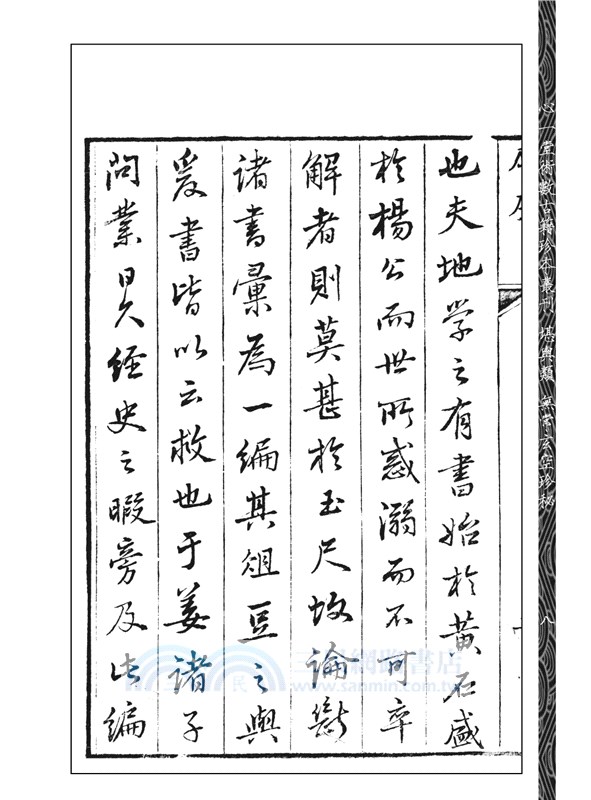 心一堂術數古籍珍本叢刊 堪輿類 無常玄空珍秘 八
也夫地學之有書始於黃石盛
於楊公而世所惑溺而不可卒
解者則莫甚於玉尺故論斷
諸書彙為一編其俎豆之與
爰書皆以云救也于姜諸子
問業日久經史之暇旁及此編
三民網路書店
www.sanmin.com.tw